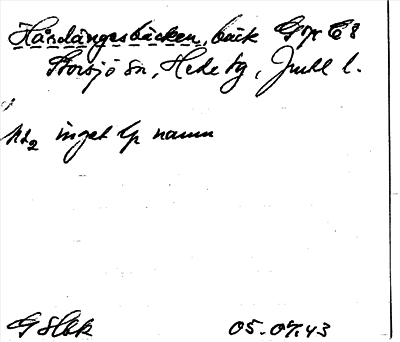 Hårdängesbäcken, bäck G 7r C 8
Storsjö sn, Hede tg, Jmtl l.
Kt2 inget lp namn
05.07.43